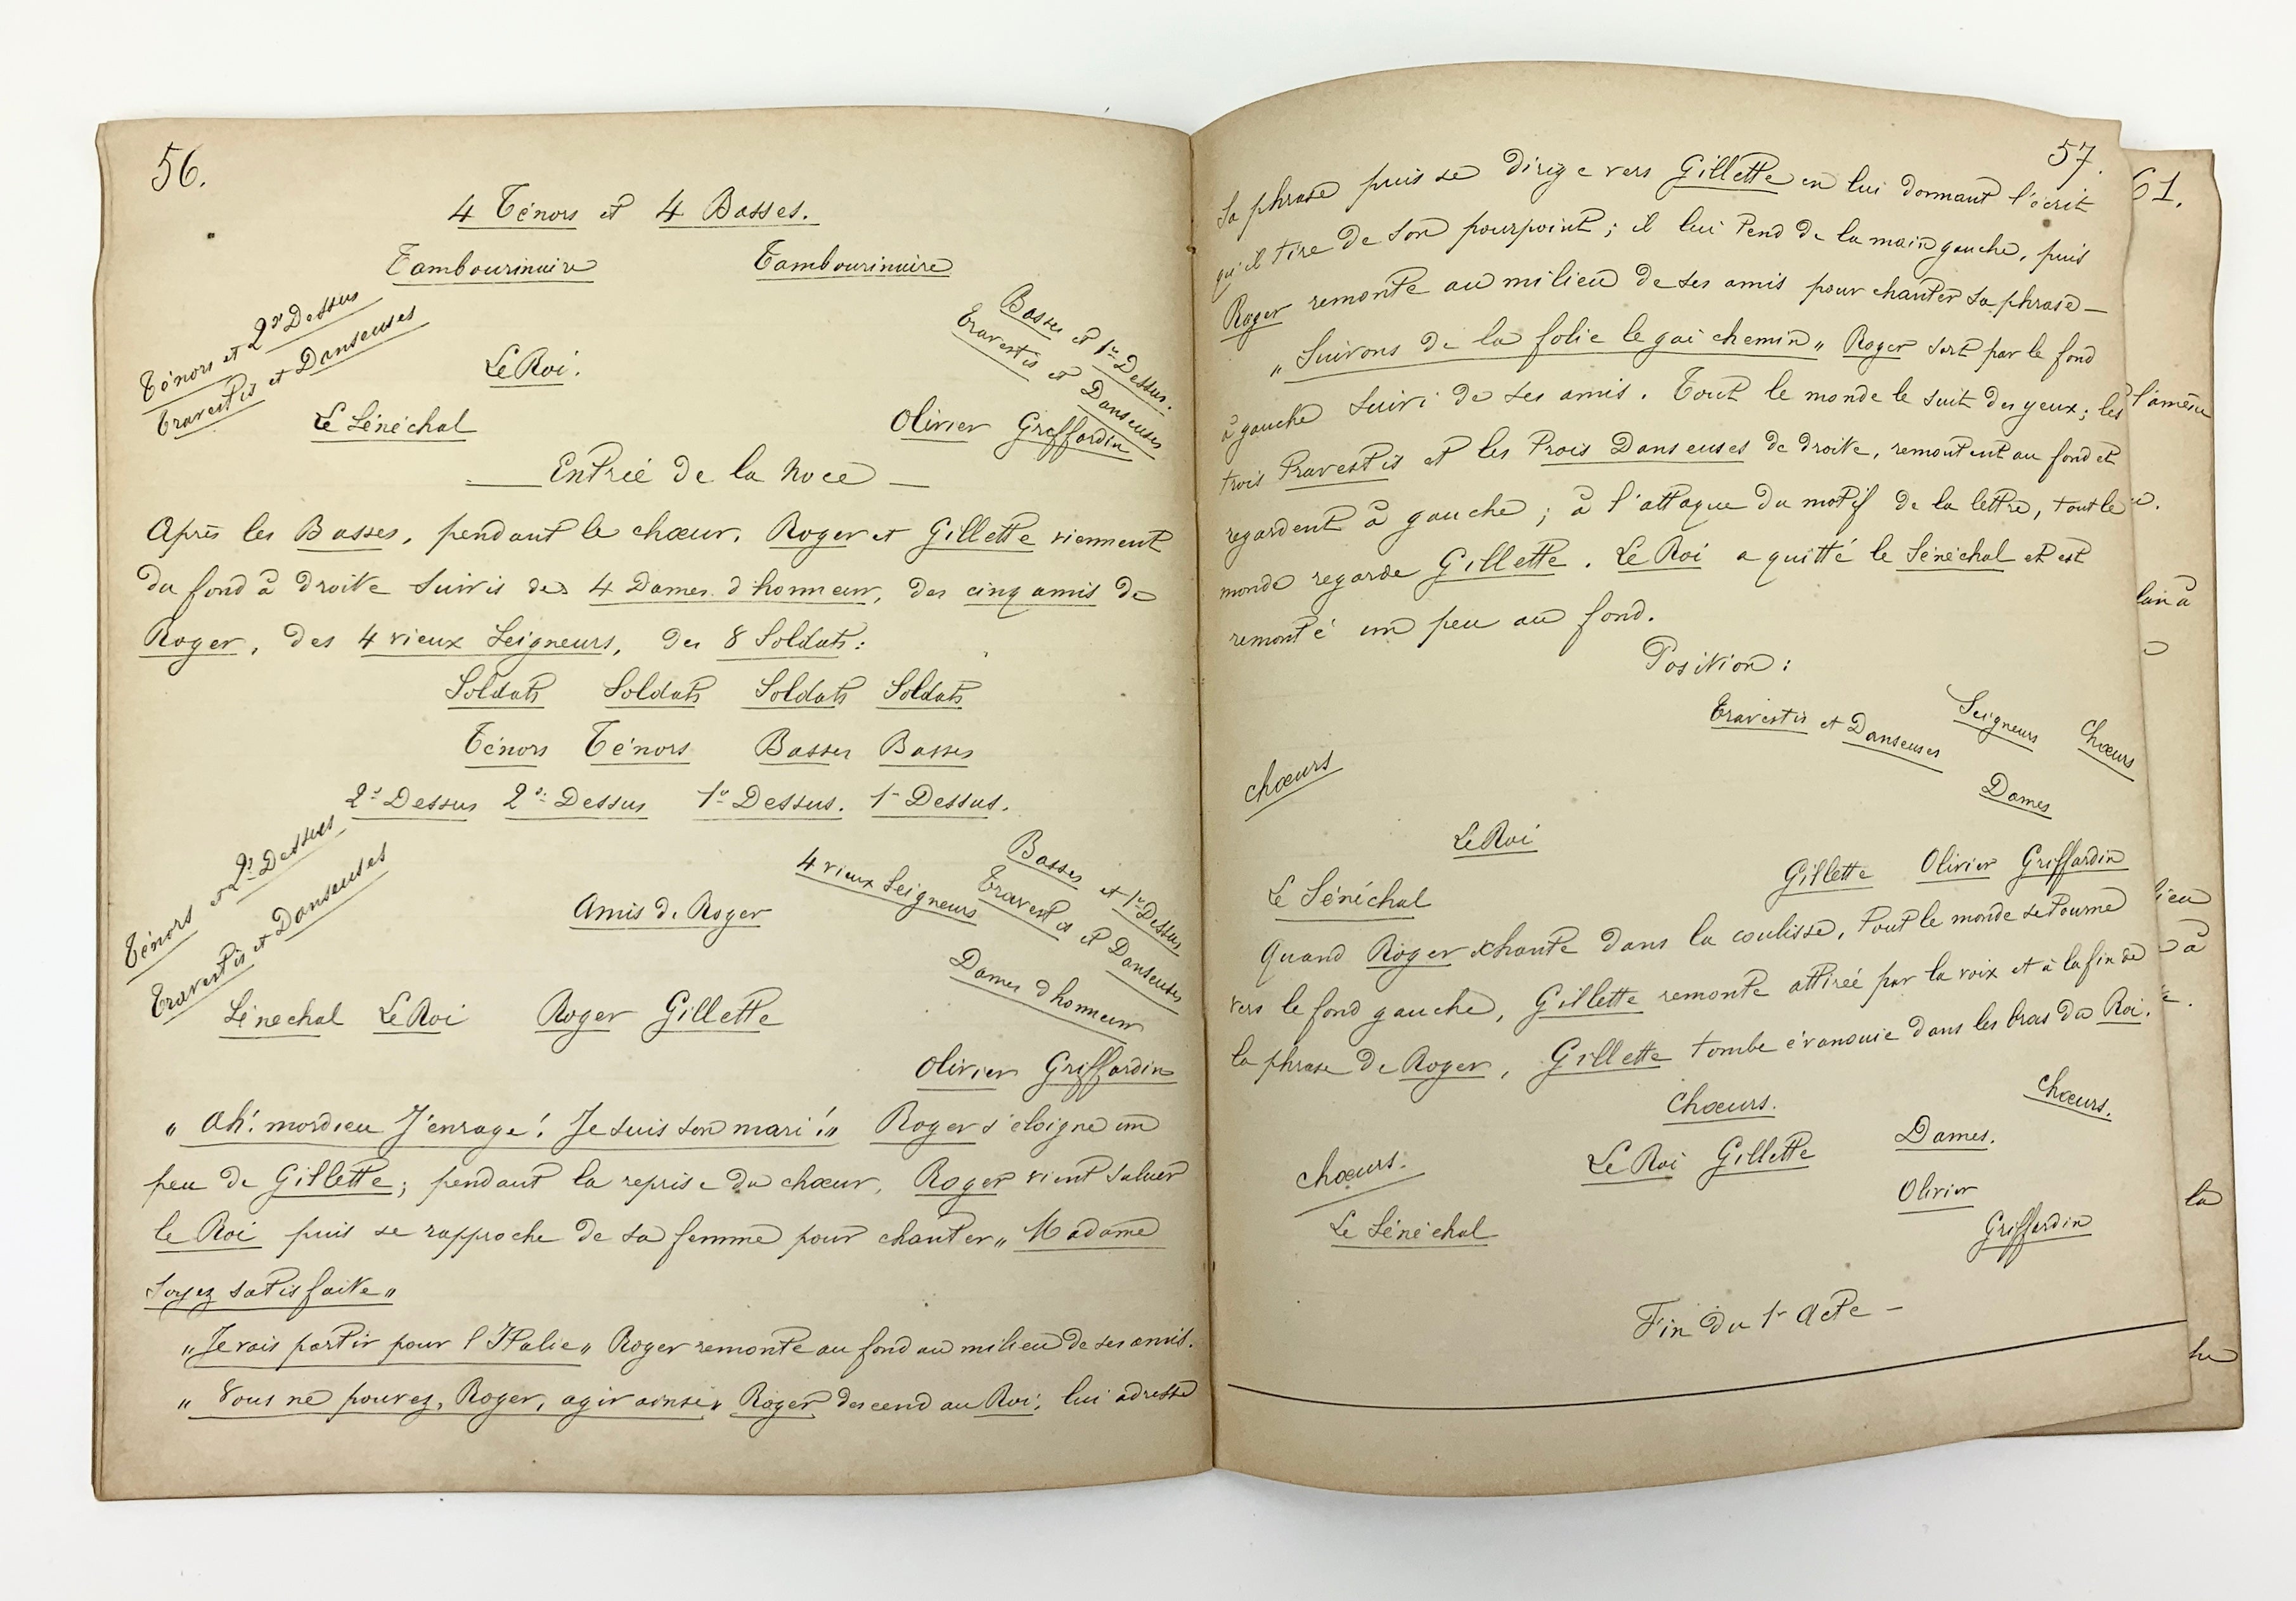 56.
4 Ténors et 4 Basses.
Tambourinaire Tambourinaire
Ténors et 2ds Dessus
Travestis et Danseuses
Basses et 1rs Dessus.
Travestis et Danseuses
Le Roi.
Le Sénéchal Olivier Griffardin
Entrée de la Noce
Après les Basses, pendant le chœur, Roger et Gillette viennent
du fond à droite suivis des 4 Dames d'honneur, des cinq amis de
Roger, des 4 vieux Seigneurs, des 8 Soldats:
Soldats Soldats Soldats Soldats
Ténors Ténors Basses Basses
2ds Dessus 2ds Dessus 1rs Dessus. 1rs Dessus.
Ténors et 2ds Dessus
Travestis et Danseuses
Amis de Roger
4 vieux Seigneurs
Basses et 1rs Dessus
Travestis et Danseuses
Dames d'honneur
Sénéchal Le Roi Roger Gillette
Olivier Griffardin
"Ah! mordieu J'enrage! Je suis son mari!" Roger s'éloigne un
peu de Gillette; pendant la reprise du chœur, Roger vient saluer
le Roi puis se rapproche de sa femme pour chanter "Madame
soyez satisfaite"
"Je vais partir pour l'Italie" Roger remonte au fond au milieu de ses amis.
"Vous ne pouvez, Roger, agir ainsi" Roger descend au Roi, lui adresse
57.
sa phrase puis se dirige vers Gillette en lui donnant l'écrit
qu'il tire de son pourpoint; il lui tend de la main gauche, puis
Roger remonte au milieu de ses amis pour chanter sa phrase —
"Suivons de la folie le gai chemin" Roger sort par le fond
à gauche suivi de ses amis. Tout le monde le suit des yeux; les
trois Travestis et les trois Danseuses de droite, remontent au fond et
regardent à gauche; à l'attaque du motif de la lettre, tout le
monde regarde Gillette. Le Roi a quitté le Sénéchal et est
remonté un peu au fond.
Position:
Travestis et Danseuses Seigneurs Chœurs
Chœurs Dames
Le Roi
Le Sénéchal Gillette Olivier Griffardin
Quand Roger chante dans la coulisse, tout le monde se tourne
vers le fond gauche, Gillette remonte attirée par la voix et à la fin de
la phrase de Roger, Gillette tombe évanouie dans les bras du Roi.
Chœurs. Chœurs.
Chœurs. Le Roi Gillette Dames.
Olivier
Le Sénéchal Griffardin
Fin du 1r Acte —
61.